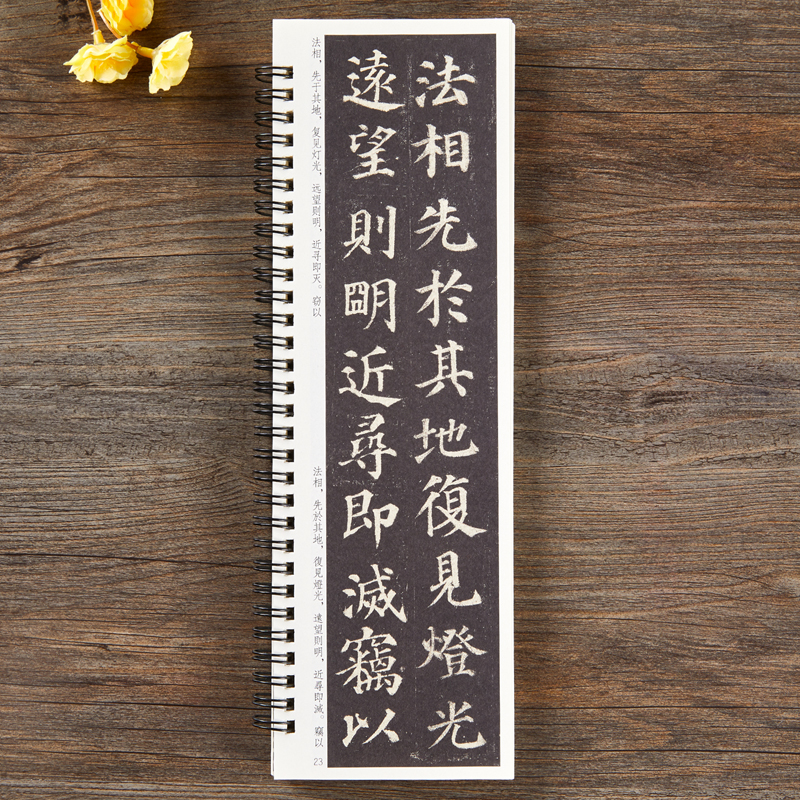 法相先於其地復見燈光
遠望則明近尋即滅竊以
法相，先于其地，复见灯光，远望则明，近寻即灭。窃以
法相，先於其地，復見燈光，遠望則明，近尋即滅。竊以
23